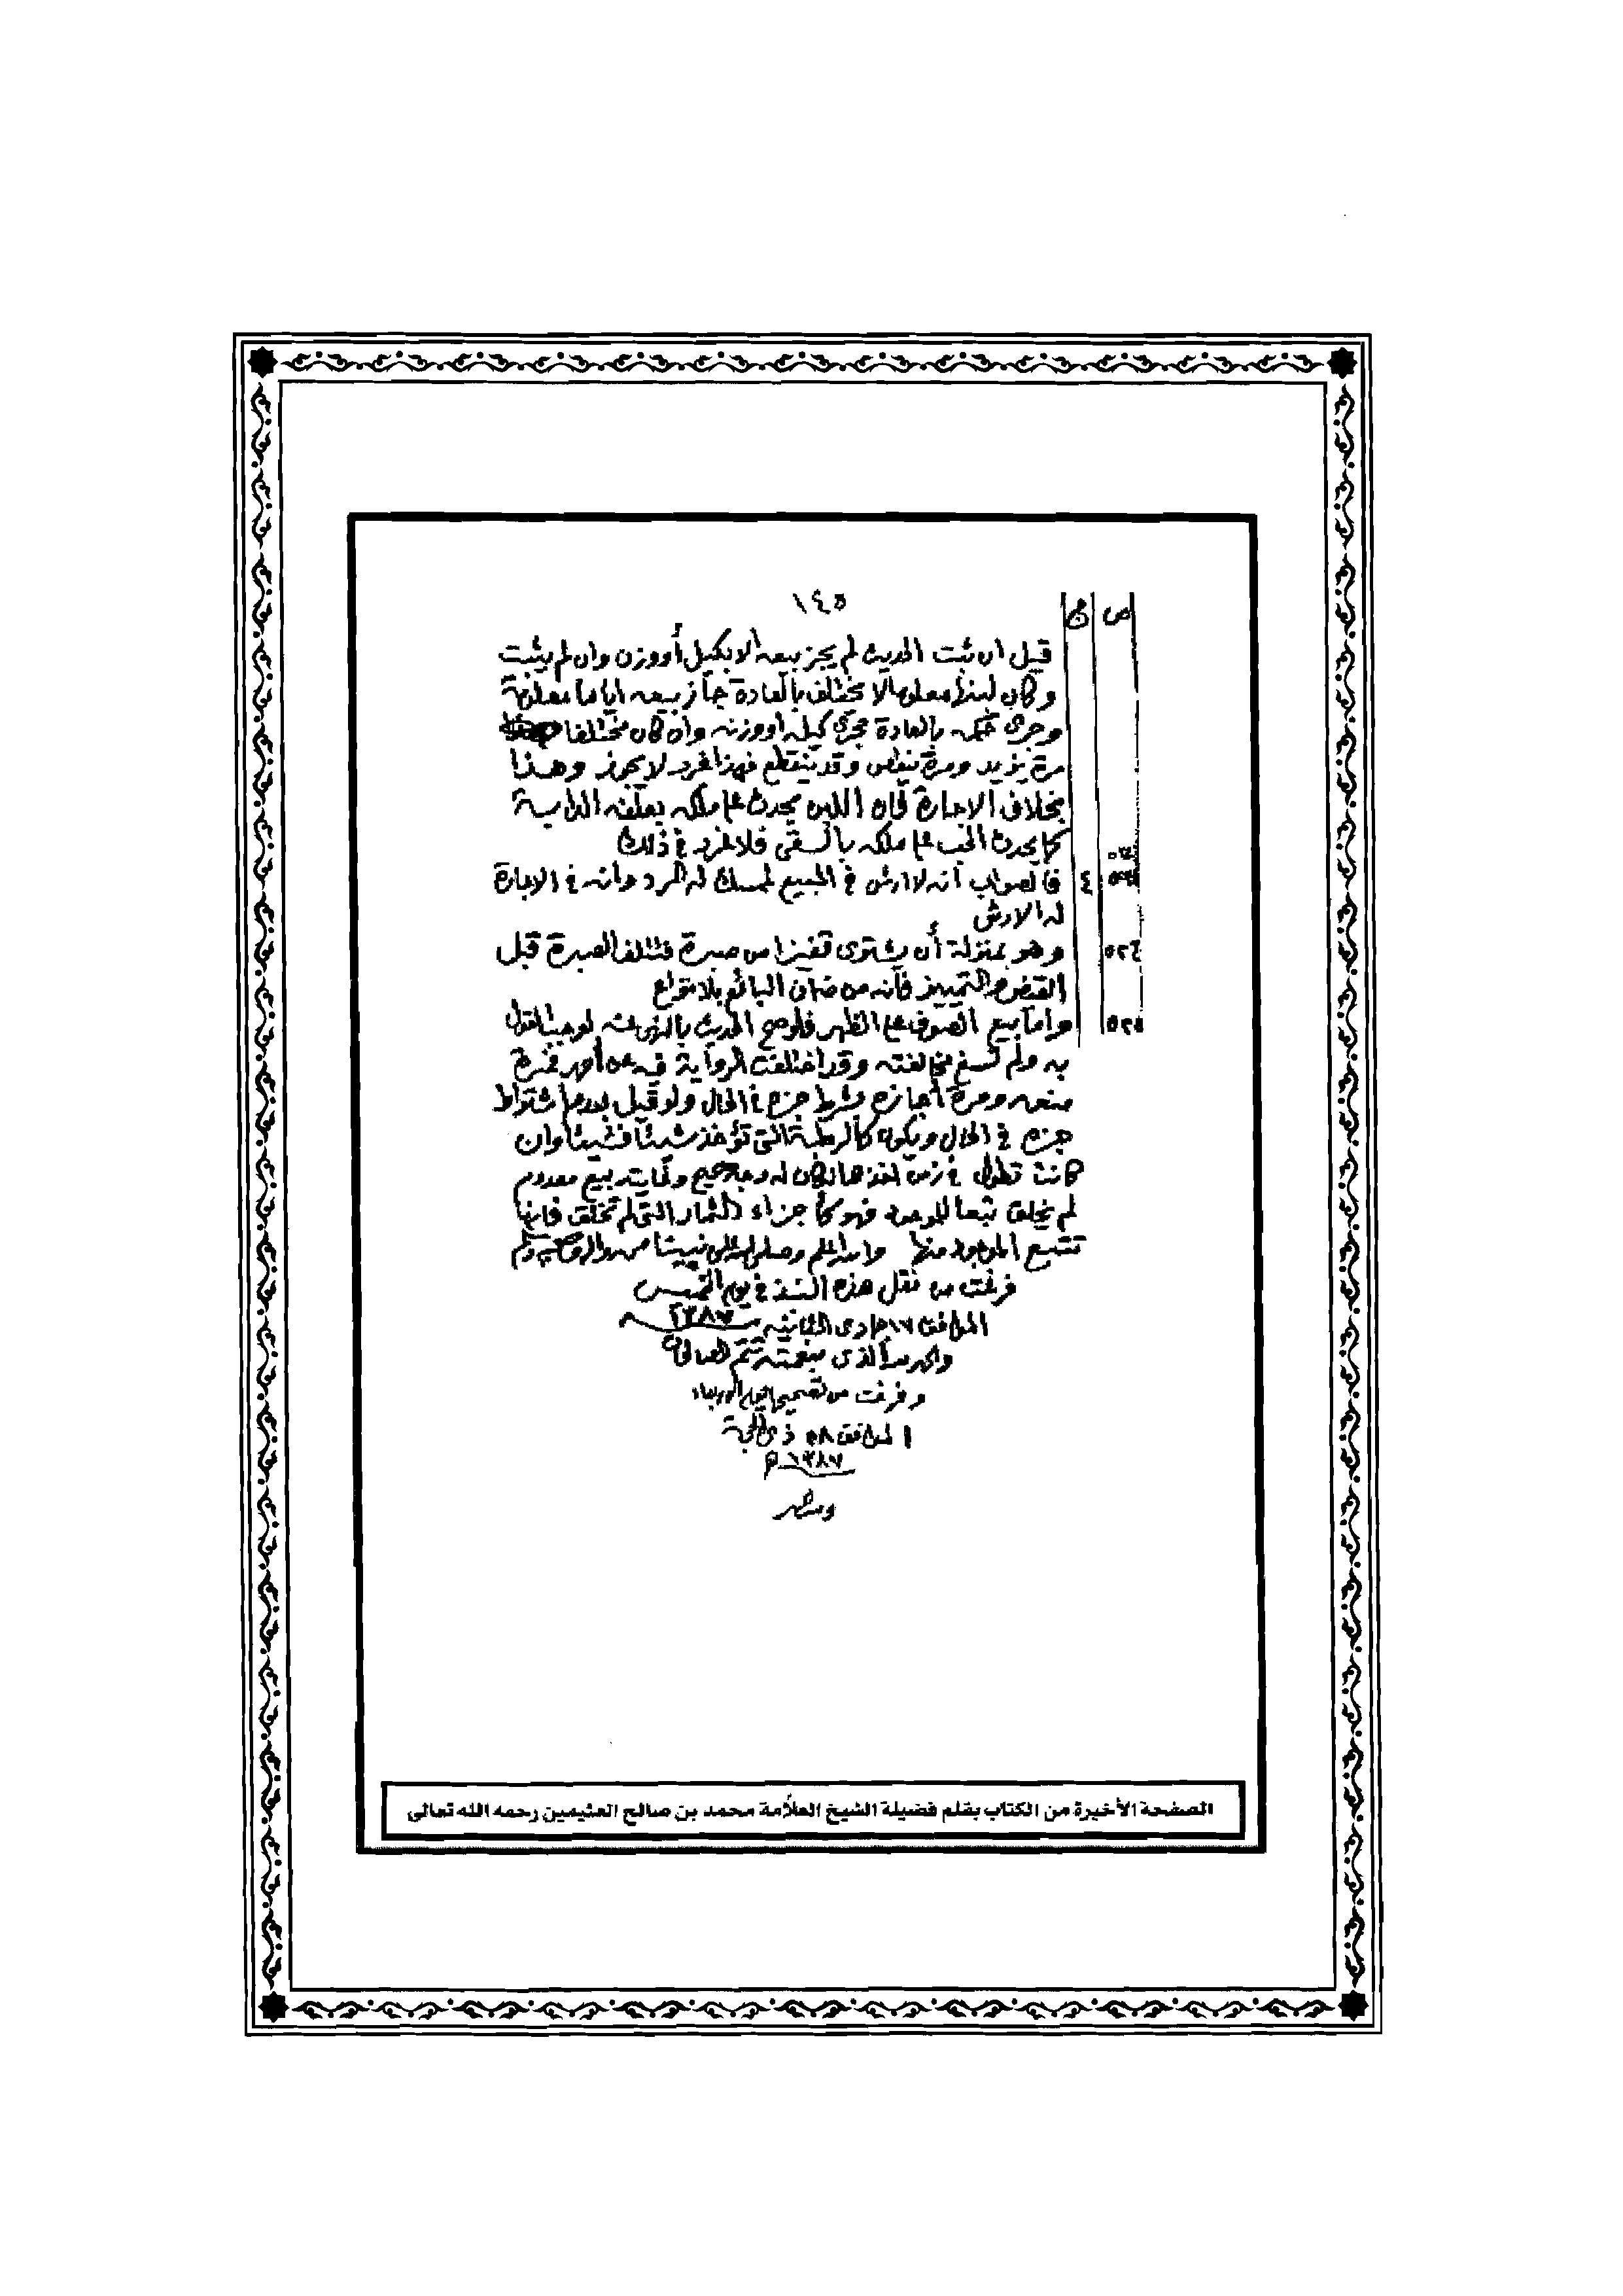 ١٤٥
ص ج
قيل ان ثبت الحديث لم يجز بيعه الا بكيل أو وزن وان لم يثبت
وكان لبنها معلوما لا يختلف بالعادة جاز بيعه اياما معلومة
وجرى حكمه بالعادة مجرى كيله او وزنه وان كان مختلفا
مرة يزيد ومرة ينقص وقد ينقطع فهذا غرر لا يجوز وهذا
بخلاف الاجارة فان اللبن يحدث على ملكه بعلفه الدابة
كما يحدث الحب على ملكه بالسقي فلا غرر في ذلك
٤ فالصواب أنه لا ارش في المبيع لممسك له الرد وأنه في الاجارة
له الارش
٥٢٤ وهو بمنزلة أن يشتري قفيزا من صبرة فتتلف الصبرة قبل
القبض والتمييز فانه من ضمان البائع بلا نزاع
٥٢٥ واما بيع الصوف على الظهر فلو صح الحديث بالنهي عنه لوجب القول
به ولم تسغ مخالفته وقد اختلفت الرواية فيه عن أحمد فمرة
منعه ومرة أجازه بشرط جزه في الحال ولو قيل بعدم اشتراط
جزه في الحال ويكون كالرطبة التي تؤخذ شيئا فشيئا وان
كانت تطول في زمن اخذها لكان له وجه صحيح وغايته بيع معدوم
لم يخلق تبعا للموجود فهو كأجزاء الثمار التي لم تخلق فانها
تتبع الموجود منها والله اعلم وصلى الله على نبينا محمد وآله وصحبه وسلم
فرغت من نقل هذه النبذ في يوم الخميس
الموافق ١٧ جمادى الثانية ١٣٨٧
والحمد لله الذي بنعمته تتم الصالحات
وفرغت من تصحيحها يوم الاربعاء
الموافق ٨ ذي الحجة
١٣٨٧ هـ
الصفحة الأخيرة من الكتاب بقلم فضيلة الشيخ العلاّمة محمد بن صالح العثيمين رحمه الله تعالى